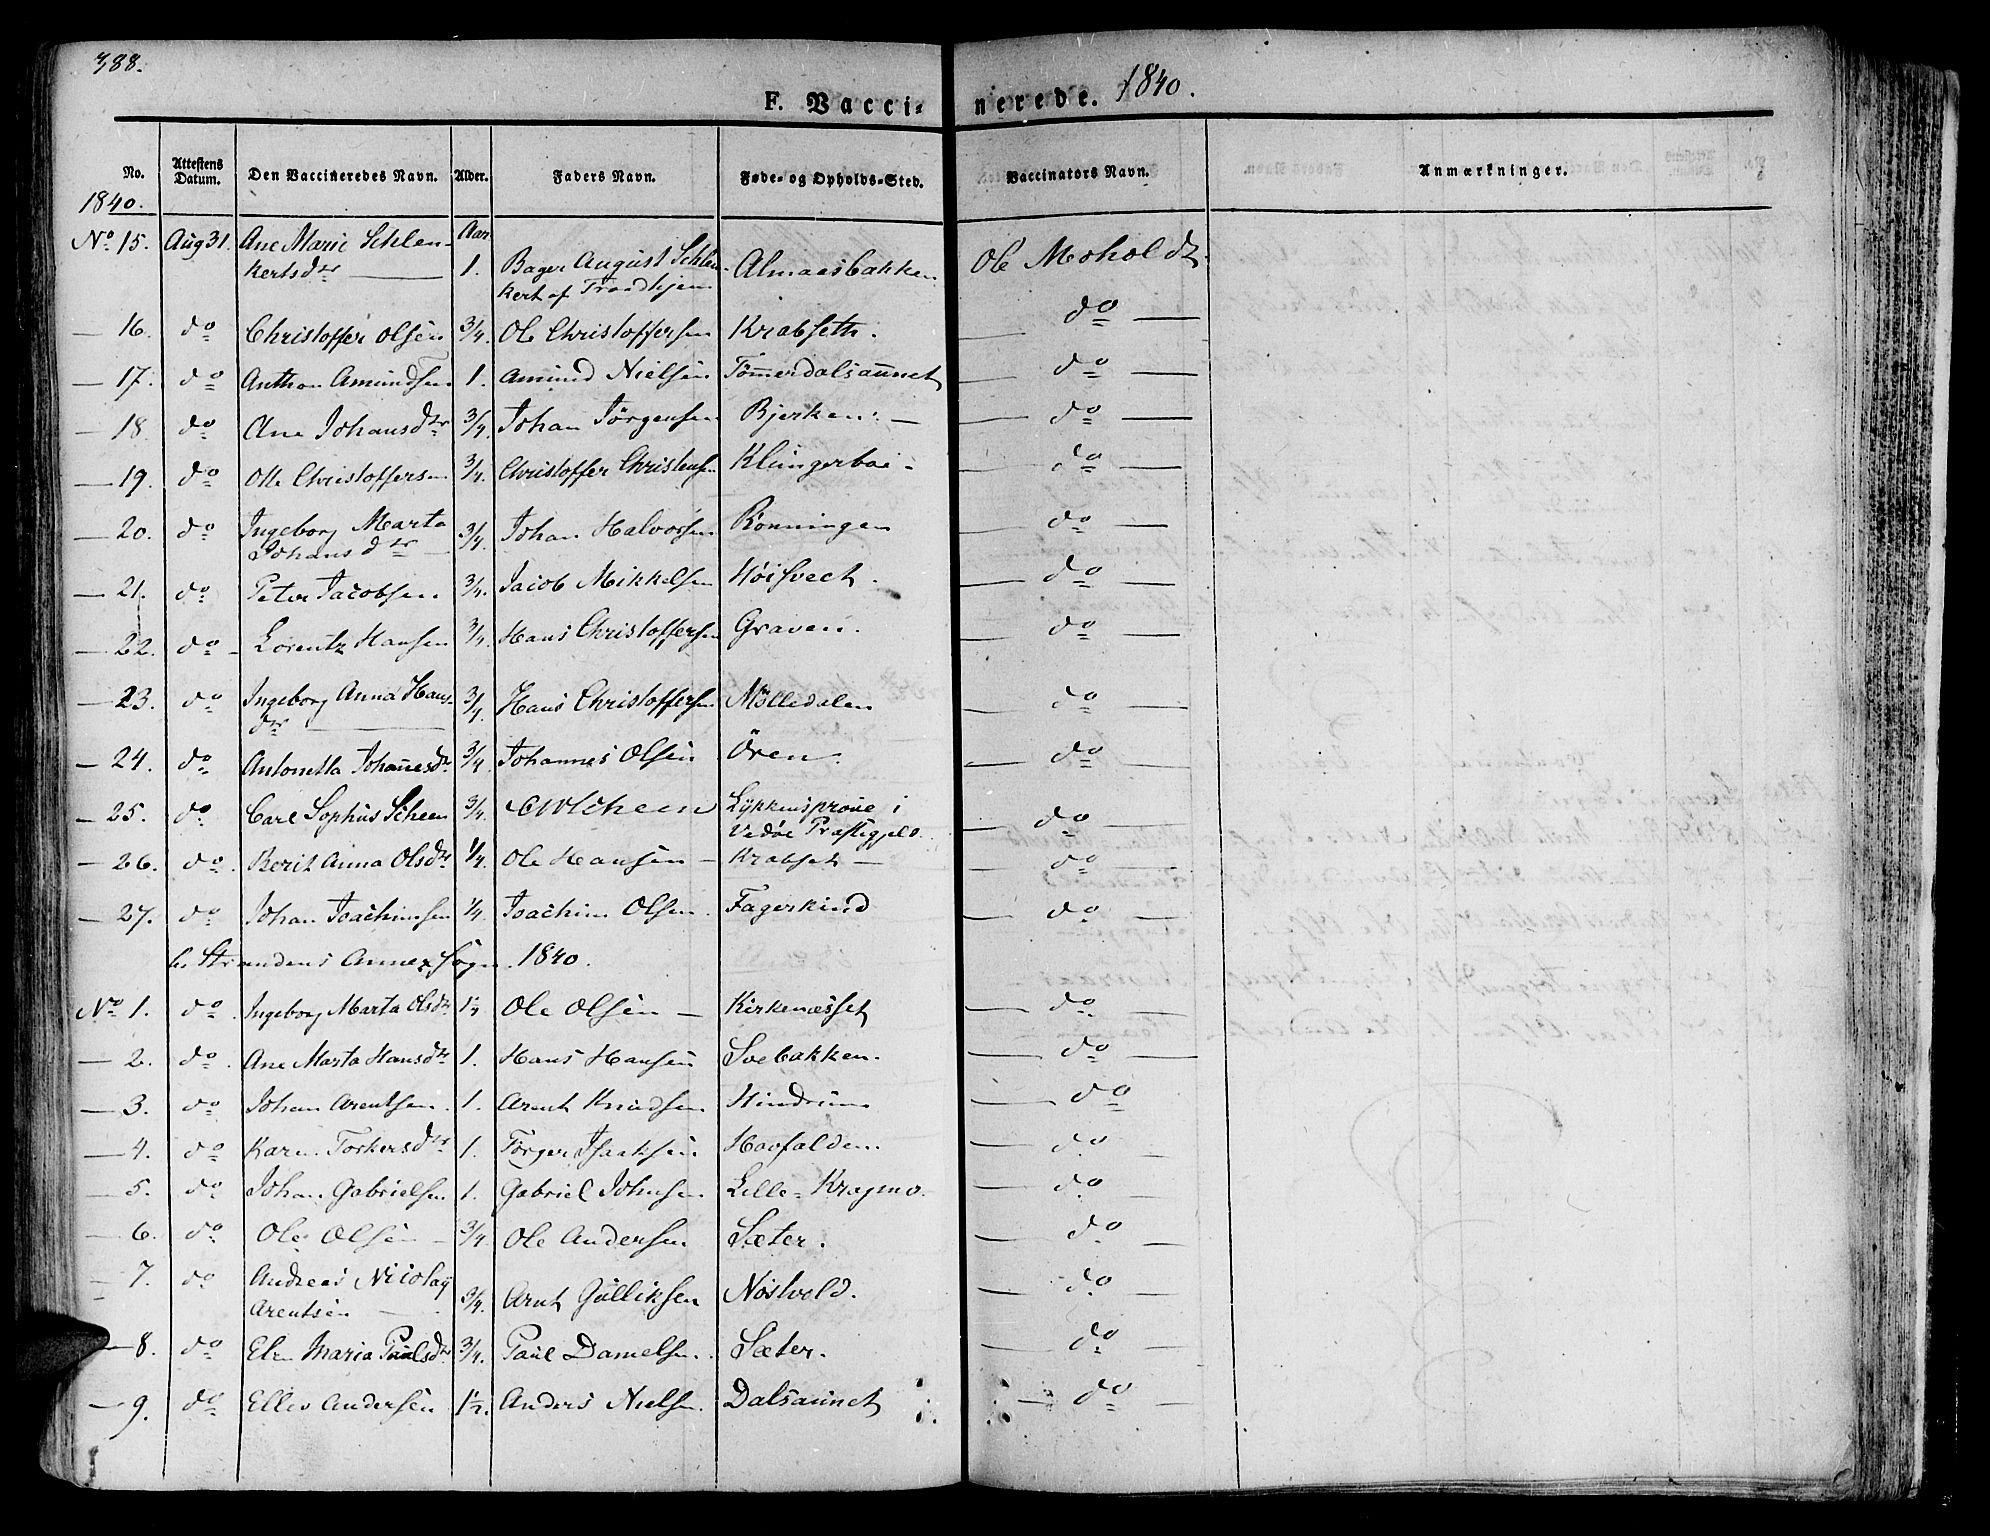 388.
F. Vacci-
nerede. 1840.
No. Attestens Datum. Den Vaccineredes Navn. Alder. Faders Navn. Føde- og Opholds-Sted. Vaccinators Navn. Anmærkninger.
1840.
No 15. Aug 31. Ane Marie Schlen- Aar.
kertsdtr 1. Bager August Schlen- Almaasbakken Ole Moholdt.
kert af Trondhjem
— 16. do Christoffer Olsen 3/4. Ole Christoffersen Krabseth. — do —
— 17. do Anthon Amundsen 1. Amund Nielsen Tömmerdalsaunet — do —
— 18. do Ane Johansdtr 3/4. Johan Jörgensen Bjerken. — — do —
— 19. do Olle Christoffersen 3/4. Christoffer Christensen Klungerboi - — do —
— 20. do Ingeborg Marta 3/4. Johan Halvorsen Rönningen — do —
Johansdtr —
— 21. do Peter Jacobsen 3/4. Jacob Mikkelsen Höisveet. — do —
— 22. do Lorentz Hansen 3/4 Hans Christoffersen Graven. — do —
— 23. do Ingeborg Anna Hans- 3/4 Hans Christoffersen Mölledalen — do —
dtr —
— 24. do Antonetta Johañesdtr 3/4 Johannes Olsen Ören. — do —
— 25. do Carl Sophus Scheen 3/4. Scheen Lykkensprøve i — do —
Vedöe Præstegjeld.
— 26. do Berit Anna Olsdtr 1/4. Ole Hansen — Krabset — — do —
— 27. do Johan Joachimsen 1/4 Joachim Olsen. Fagerkind — do —
b. Strandens Annex Sogn. 1840.
No 1. do Ingeborg Marta Olsdtr 1½ Ole Olsen — Kirkenæsset — do —
— 2. do Ane Marta Hansdtr 1. Hans Hansen Svebakken. — do —
— 3. do Johan Arentsen. 1. Arent Knudsen Hindrum — do —
— 4. do Karen Torkersdtr 1. Törger Isaaksen — do —
— 5. do Johan Gabrielsen 1. Gabriel Johnsen Lille-Kragmo. — do —
— 6. do Ole Olsen — 3/4. Ole Andersen Sæter. — do —
— 7. do Andreas Nicolay
Arentsen — 3/4. Arnt Gulliksen Nöstvold. — do —
— 8. do Elen Maria Paulsdtr 3/4. Paul Danielsen. Sæter. — do —
— 9. do Ellev Andersen 1½. Anders Nielsen. Dalsaunet — do —